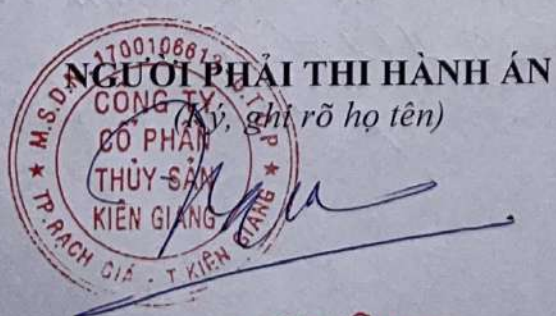 NGƯỜI PHẢI THI HÀNH ÁN
(Ký, ghi rõ họ tên)
M.S.D.N 1700106613 C.T.C.P
CÔNG TY
CỔ PHẦN
THỦY SẢN
KIÊN GIANG
TP. RẠCH GIÁ - T. KIÊN GIANG